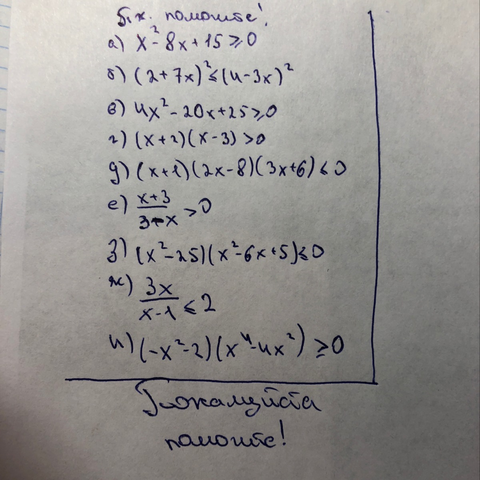 помогите!
а) x² - 8x + 15 ≥ 0
б) (2 + 7x)² ≤ (4 - 3x)²
в) 4x² - 20x + 25 ≥ 0
г) (x + 2)(x - 3) > 0
д) (x + 1)(2x - 8)(3x + 6) ≤ 0
е) (x + 3)/(3 - x) > 0
з) (x² - 25)(x² - 6x + 5) ≤ 0
ж) 3x/(x - 1) ≤ 2
и) (-x² - 2)(x⁴ - 4x²) ≥ 0
Пожалуйста
помогите!